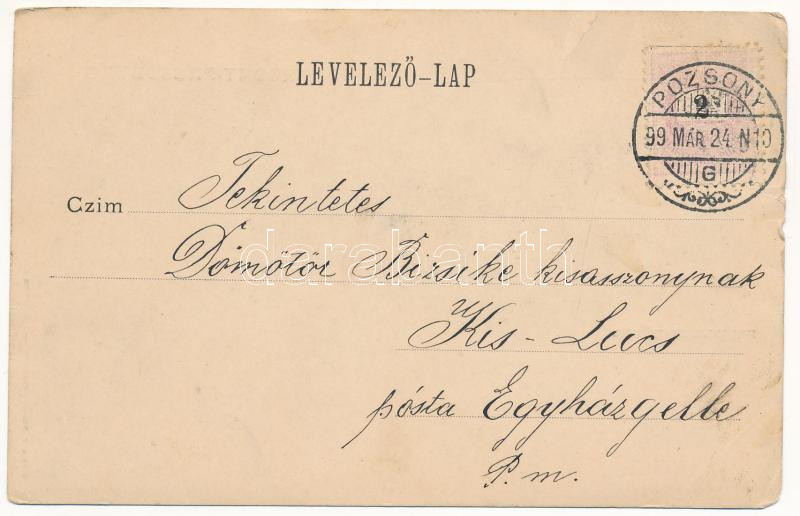 LEVELEZŐ-LAP
POZSONY
2
99 MÁR. 24. N10
G
Czim Tekintetes
Dömötör Bizsike kisasszonynak
Kis-Lucs
pósta Egyházgelle
P. m.
darabanth